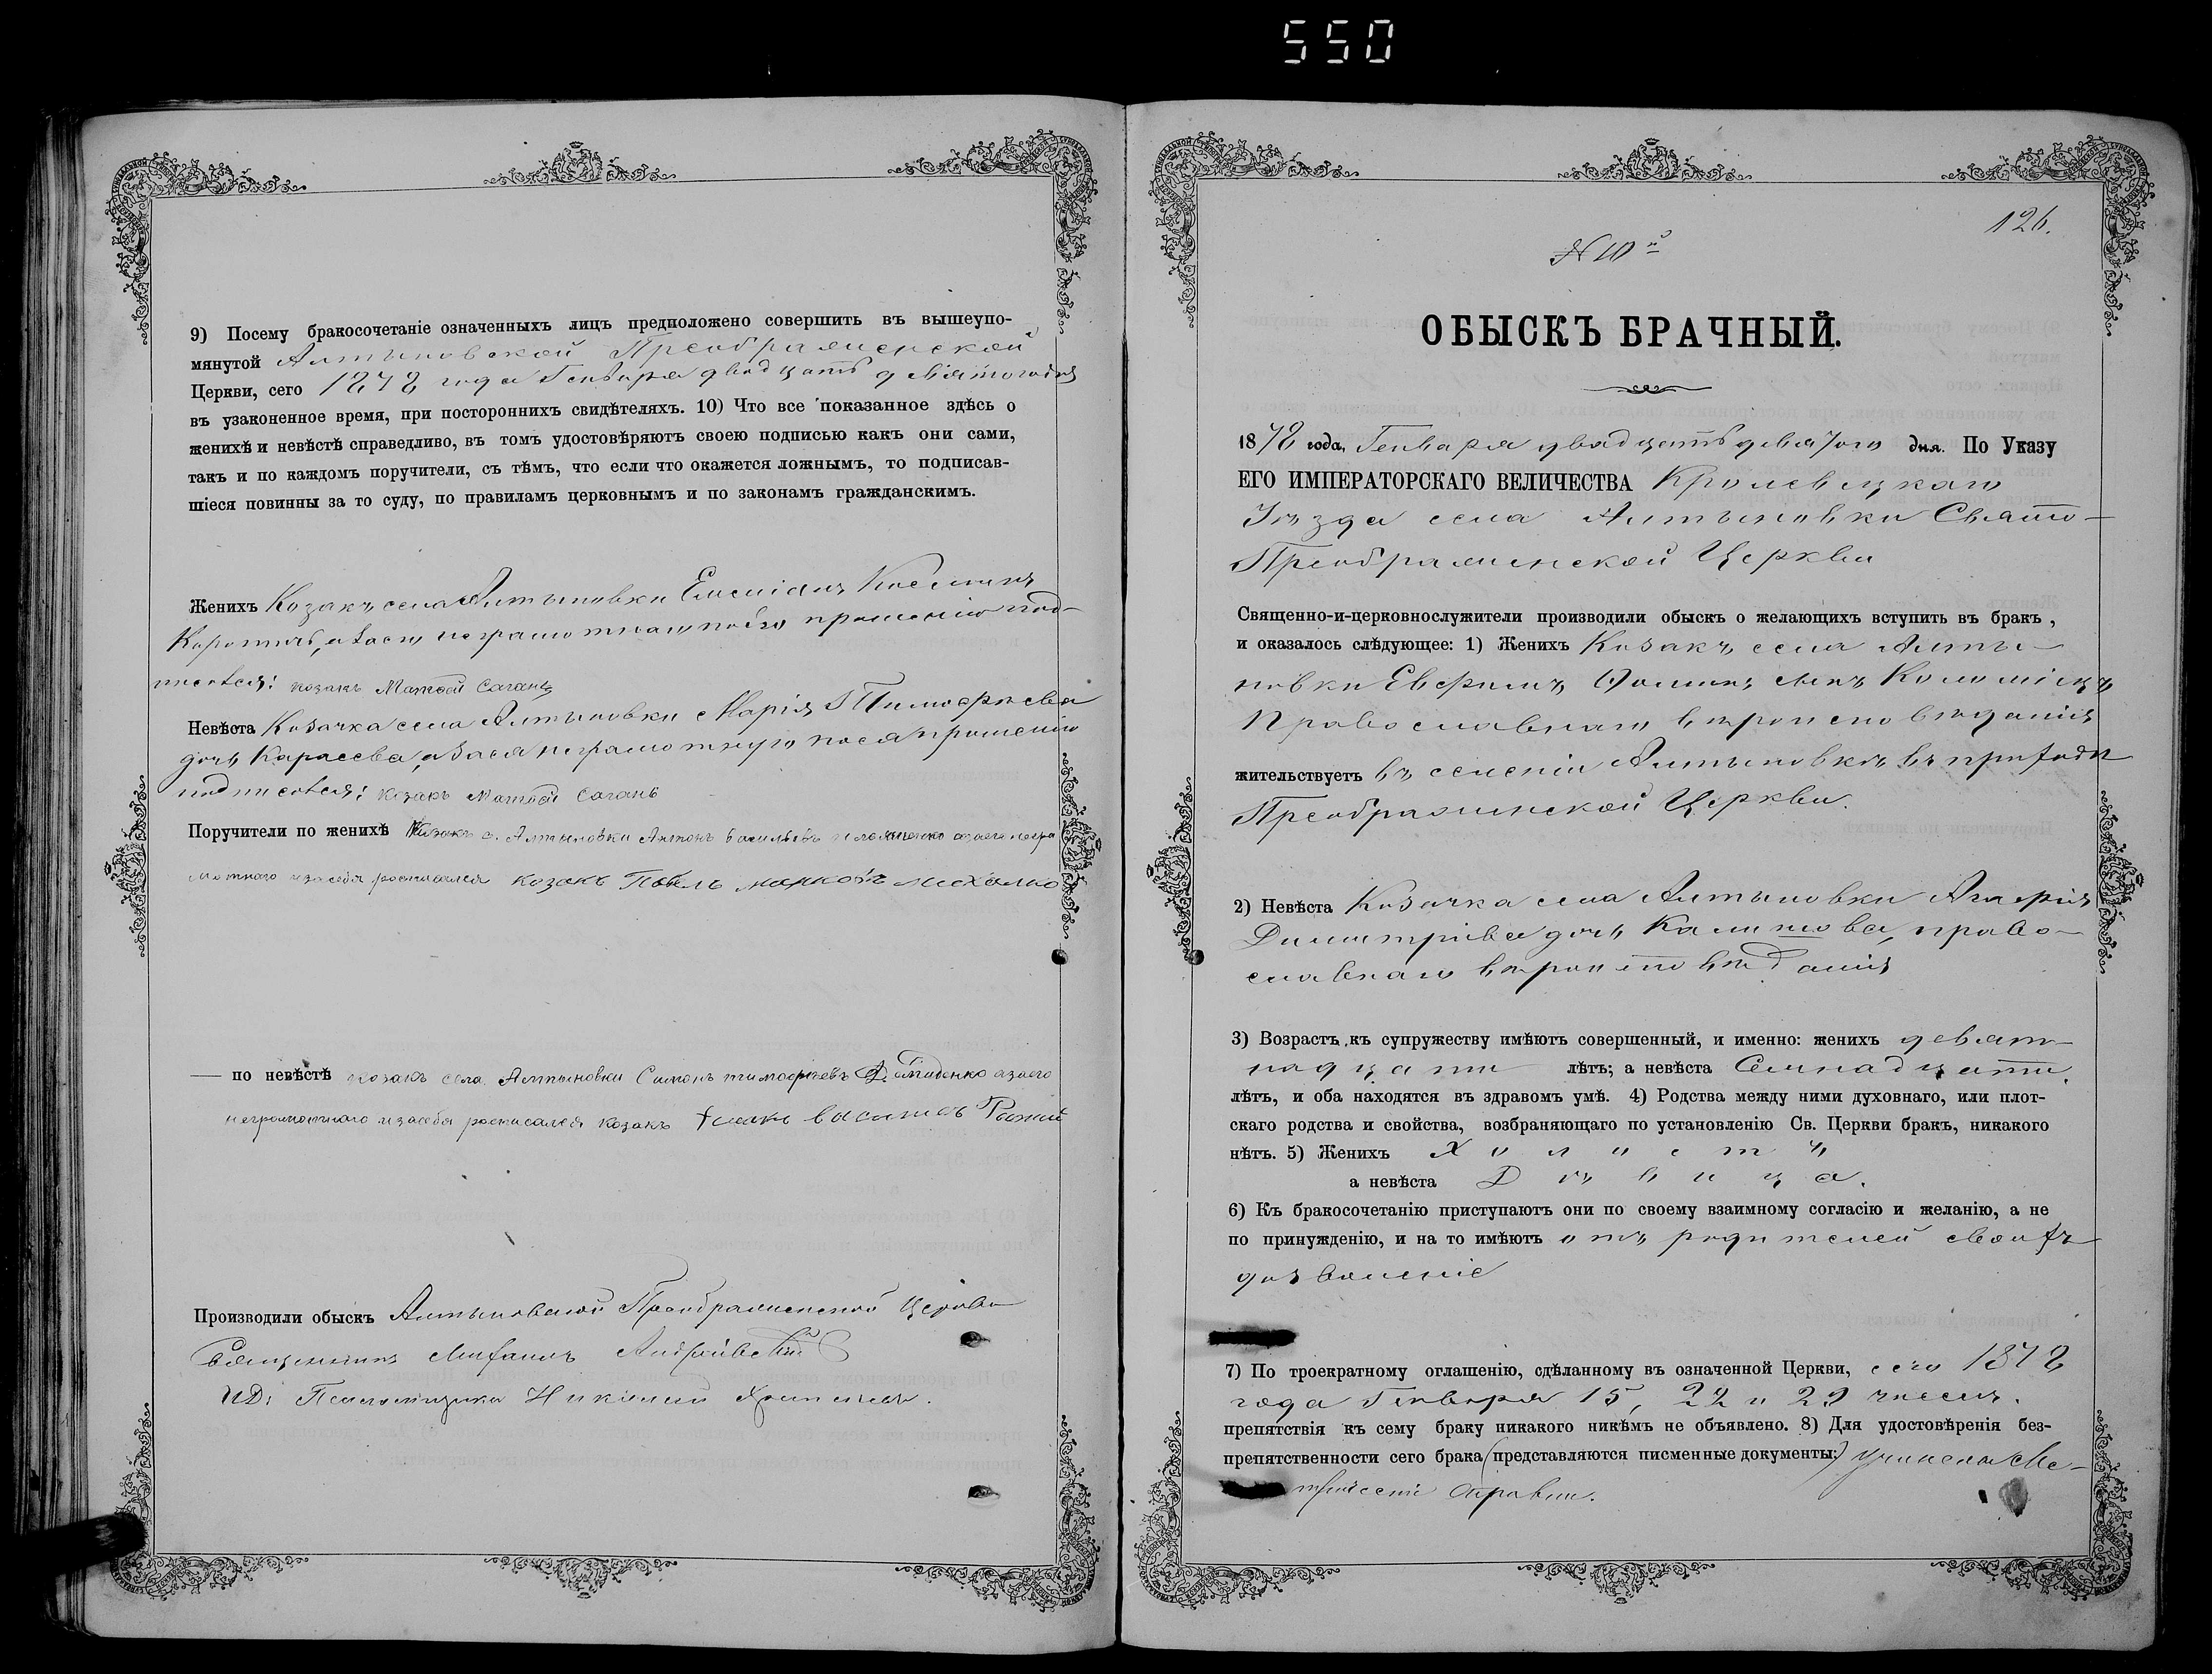 550
9) Посему бракосочетаніе означенныхъ лицъ предположено совершить въ вышеупо-
мянутой Алтыновской Преображенской
Церкви, сего 1878 года Генваря двадцать девятого дня
въ узаконенное время, при постороннихъ свидѣтеляхъ. 10) Что все показанное здѣсь о
женихѣ и невѣстѣ справедливо, въ томъ удостовѣряютъ своею подписью какъ они сами,
такъ и по каждомъ поручители, съ тѣмъ, что если что окажется ложнымъ, то подписав-
шіеся повинны за то суду, по правиламъ церковнымъ и по законамъ гражданскимъ.
Женихъ Козакъ села Алтыновки Емеліанъ Косминъ
неграмотнаго по его прошенію под-
писался: козакъ Матвѣй Саганъ
Невѣста Козачка села Алтыновки Марія Тимофѣева
дочь Карасева, а за ея неграмотную по ея прошенію
подписался: козакъ Матвѣй Саганъ
Поручители по женихѣ Козакъ с. Алтыновки Антонъ Васильевъ а за его негра
мотнаго и за себя росписался козакъ Павелъ Марковъ Михалко
— по невѣстѣ козакъ села Алтыновки Симонъ тимофѣевъ Демиденко а за его
неграмотнаго и за себя росписался козакъ
Производили обыскъ Алтыновской Преображенской Церкви
Священникъ Михаилъ
И.Д. Псаломщика Николай
126.
№ 10й
ОБЫСКЪ БРАЧНЫЙ.
1878 года, Генваря двадцать девятого дня. По Указу
ЕГО ИМПЕРАТОРСКАГО ВЕЛИЧЕСТВА Кролевецкаго
Уѣзда села Алтыновки Свято-
Преображенской Церкви
Священно-и-церковнослужители производили обыскъ о желающихъ вступить въ бракъ,
и оказалось слѣдующее: 1) Женихъ Козакъ села Алты-
новки Евфимъ Фоминъ сынъ Коломіецъ
Православнаго вѣроисповѣданія
жительствуетъ въ селеніи Алтыновкѣ въ приходѣ
Преображенской Церкви.
2) Невѣста Козачка села Алтыновки Агафія
Димитріева дочь Калитова, право-
славнаго вѣроисповѣданія
3) Возрастъ къ супружеству имѣютъ совершенный, и именно: женихъ девят-
надцати лѣтъ; а невѣста Семнадцати
лѣтъ, и оба находятся въ здравомъ умѣ. 4) Родства между ними духовнаго, или плот-
скаго родства и свойства, возбраняющаго по установленію Св. Церкви бракъ, никакого
нѣтъ. 5) Женихъ Холостъ
а невѣста Дѣвица.
6) Къ бракосочетанію приступаютъ они по своему взаимному согласію и желанію, а не
по принужденію, и на то имѣютъ отъ родителей своихъ
дозволеніе
7) По троекратному оглашенію, сдѣланному въ означенной Церкви, сего 1878
года Генваря 15, 22 и 29 чиселъ.
препятствія къ сему браку никакого никѣмъ не объявлено. 8) Для удостовѣренія без-
препятственности сего брака (представляются писменные документы:) учинены Ме-
трическія справки.